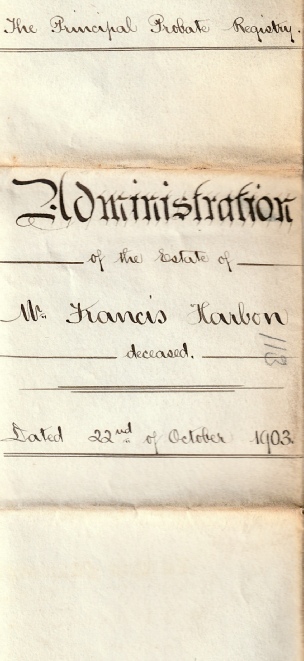 The Principal Probate Registry.
Administration
of the Estate of
Mr. Francis Harbon
deceased.
113
Dated 22nd of October 1903.